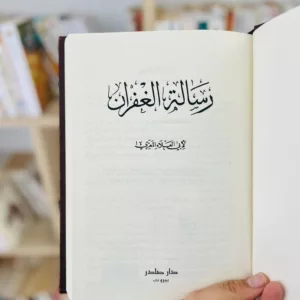 رسالة الغفران
لأبي العلاء المعري
دار صادر
بيروت